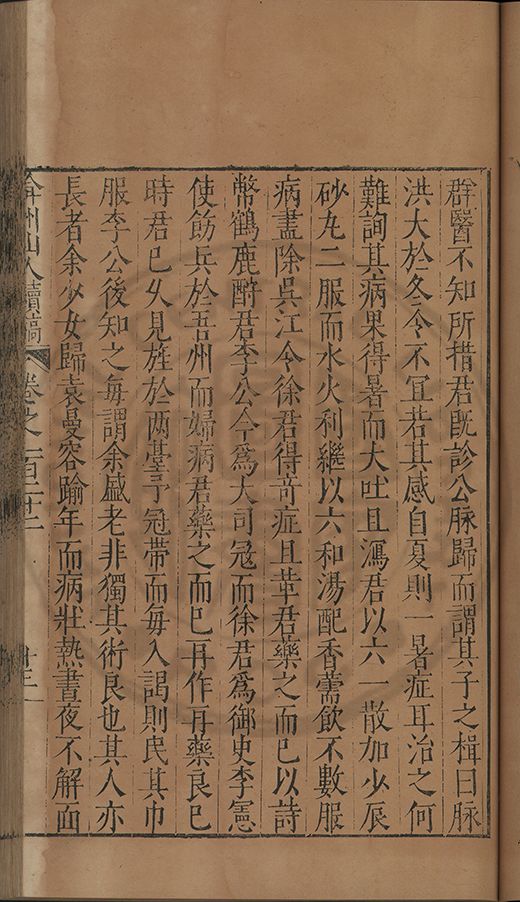 群醫不知所措君旣診公脉歸而謂其子之楫曰脉
洪大於冬令不宜若其感自夏則一暑症耳治之何
難詢其病果得暑而大吐且瀉君以六一散加少辰
砂丸二服而水火利繼以六和湯配香薷飲不數服
病盡除吳江令徐君得竒症且革君藥之而已以詩
幣鶴鹿酧君李公今爲大司冦而徐君爲御史李憲
使飭兵於吾州而婦病君藥之而已再作再藥良已
時君已乆見旌於两臺予冠帶而每入謁則民其巾
服李公後知之每謂余盛老非獨其術良也其人亦
長者余少女歸袁曼容踰年而病壯熱晝夜不解面
弇州山人續稿 卷之一百二十二 廿三